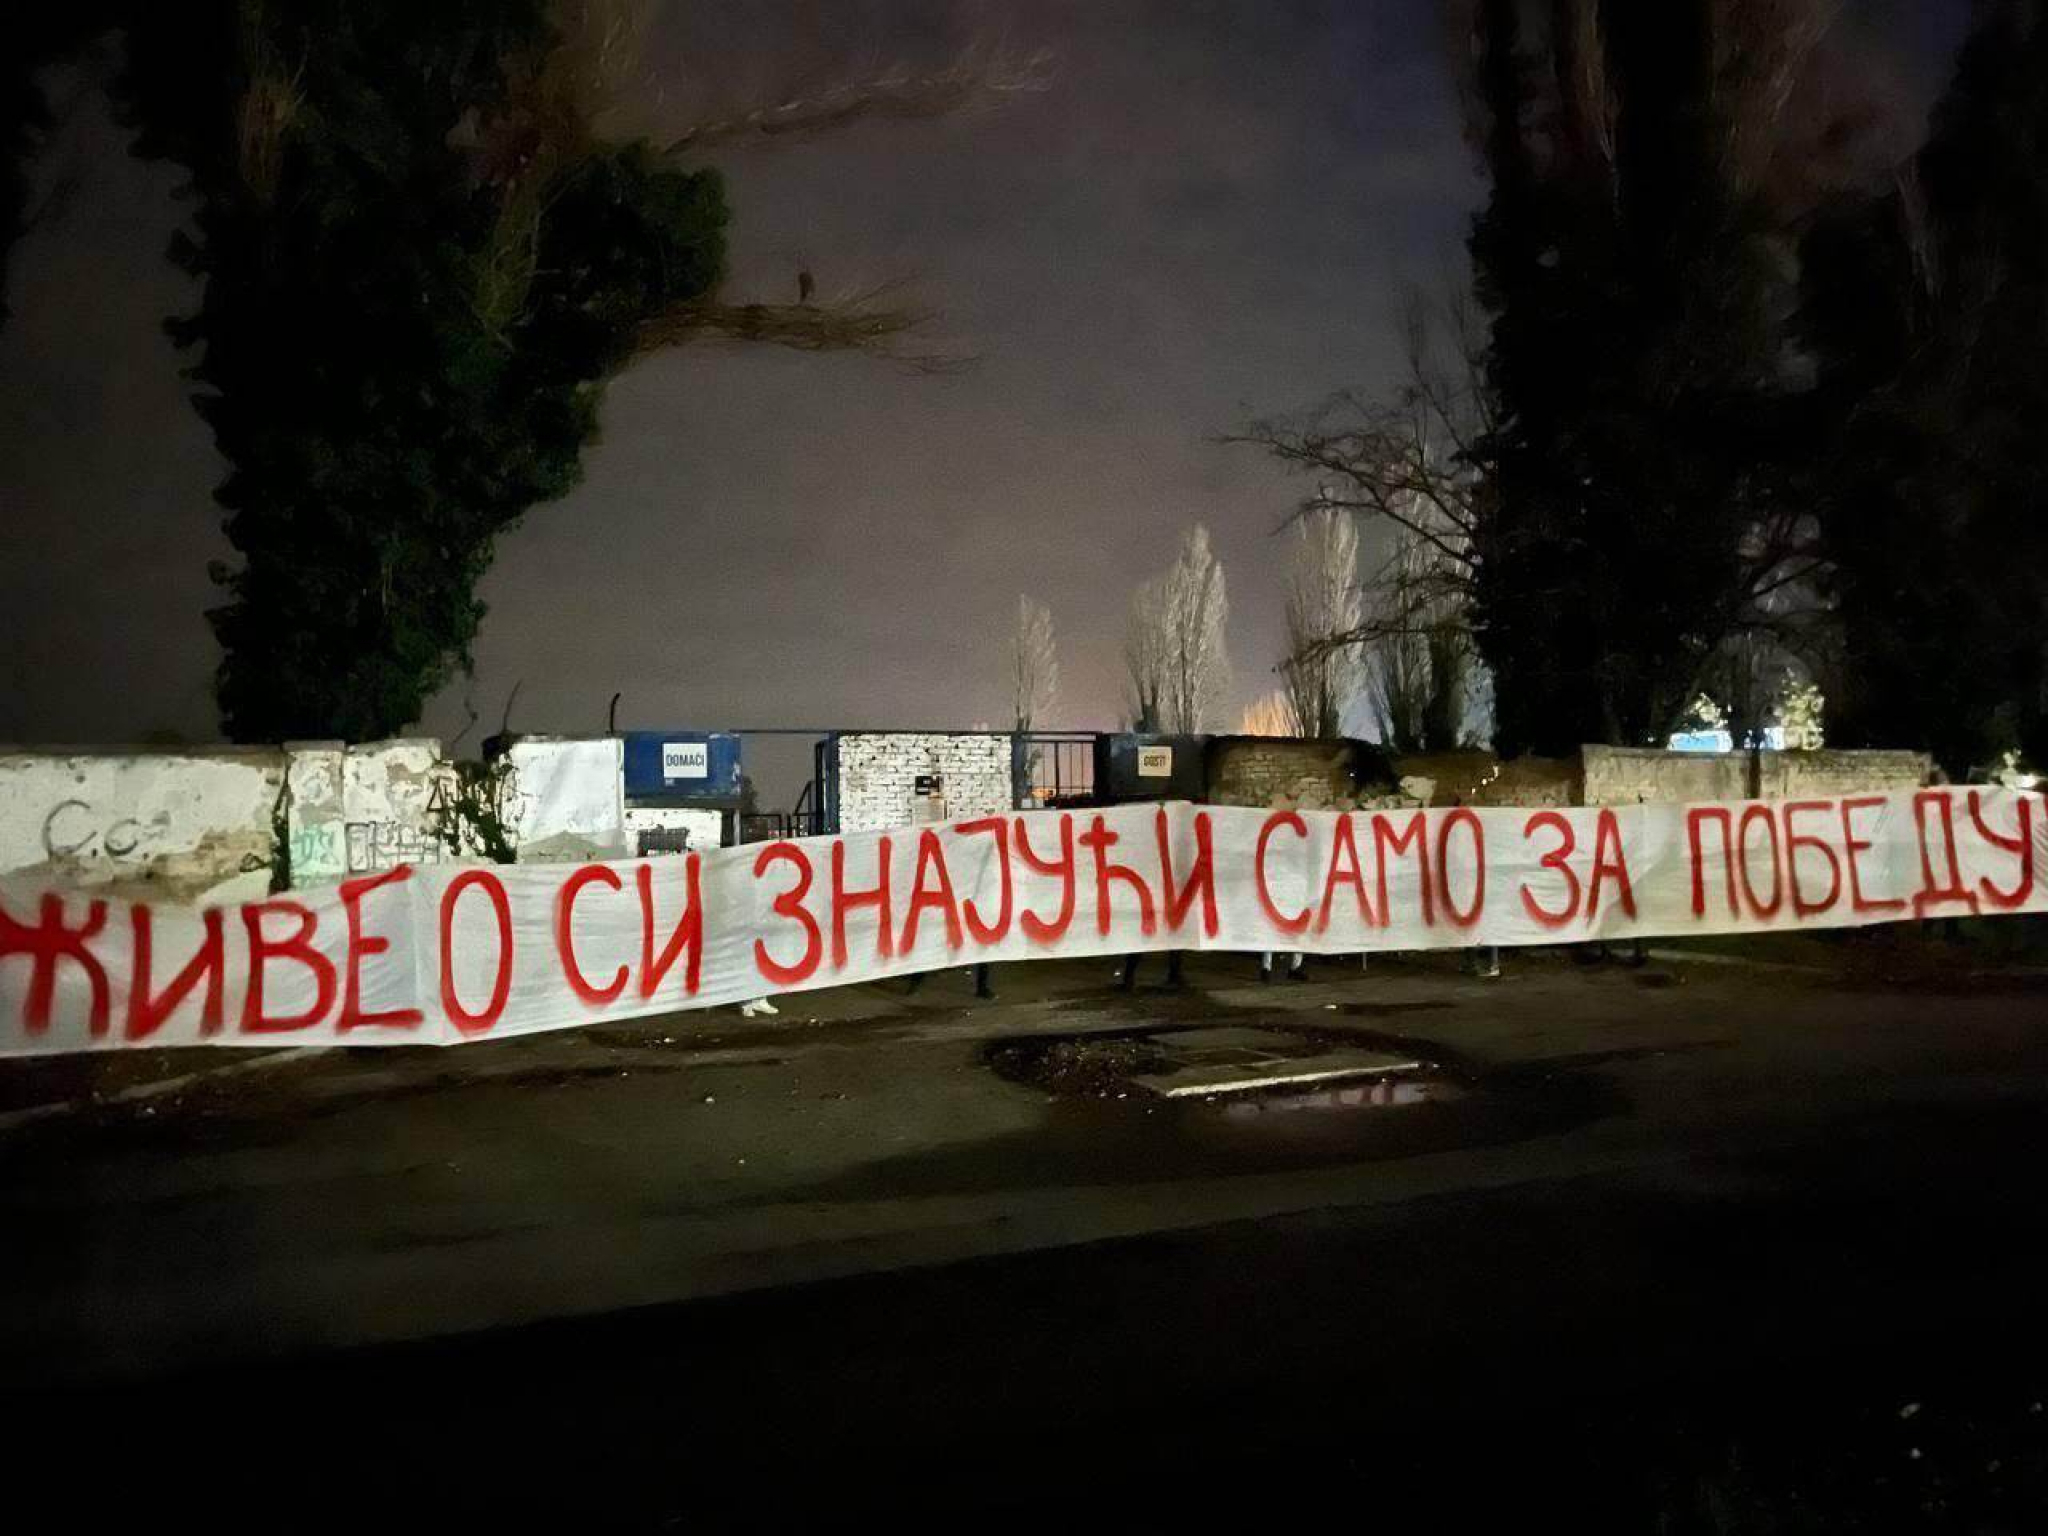 DOMAĆI
GOSTI
C.C
ЖИВЕО СИ ЗНАЈУЋИ САМО ЗА ПОБЕДУ